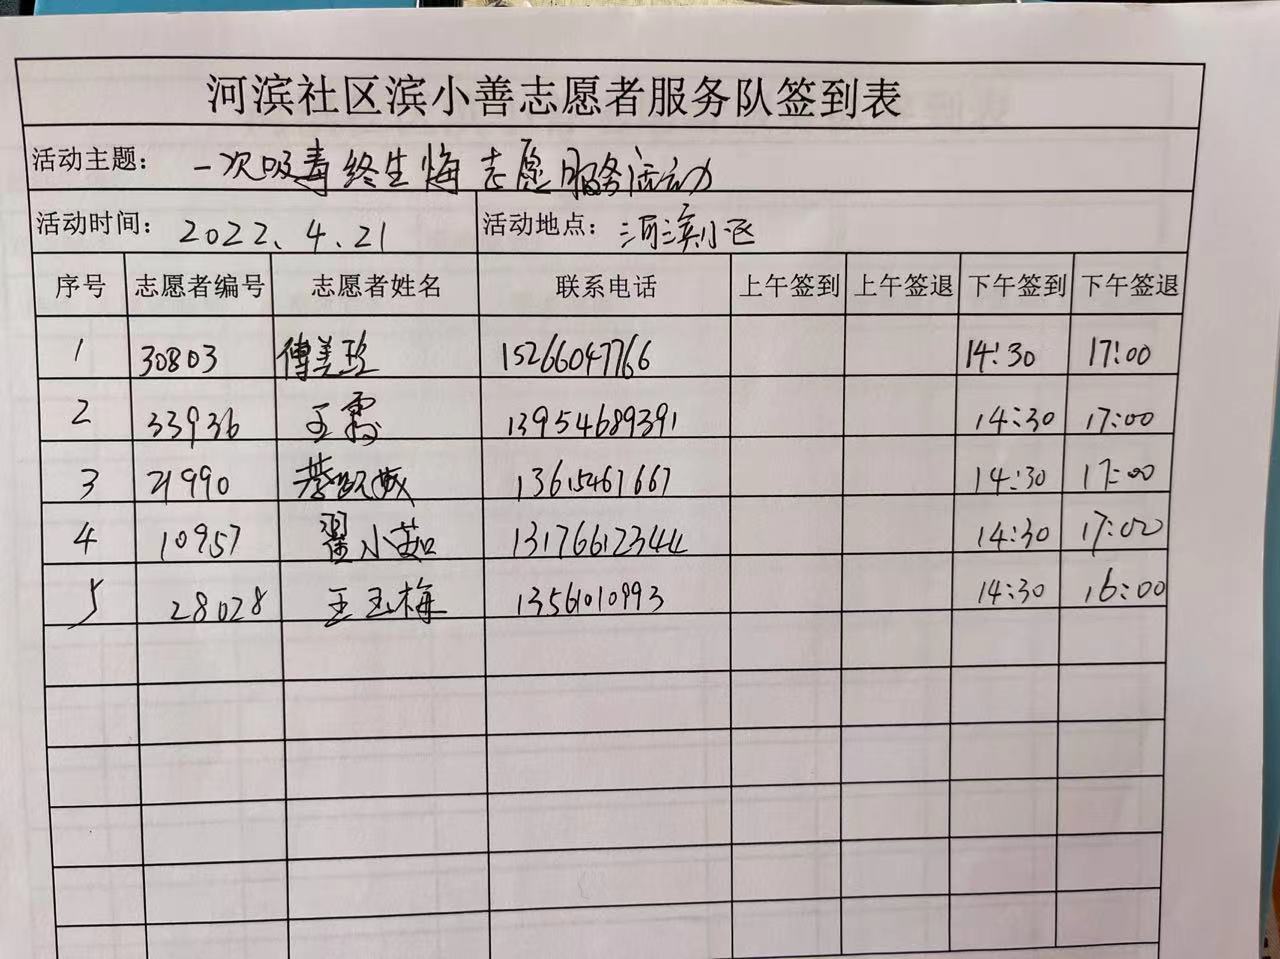 河滨社区滨小善志愿者服务队签到表
活动主题： 一次吸毒终生悔志愿服务活动
活动时间： 2022、4、21 活动地点： 河滨小区
序号 志愿者编号 志愿者姓名 联系电话 上午签到 上午签退 下午签到 下午签退
1 30803 傅美玲 15266047766 14:30 17:00
2 33936 王霞 13954689391 14:30 17:00
3 21990 13615461667 14:30 17:00
4 10957 翟小茹 13176612344 14:30 17:00
5 28028 王玉梅 13561010993 14:30 16:00